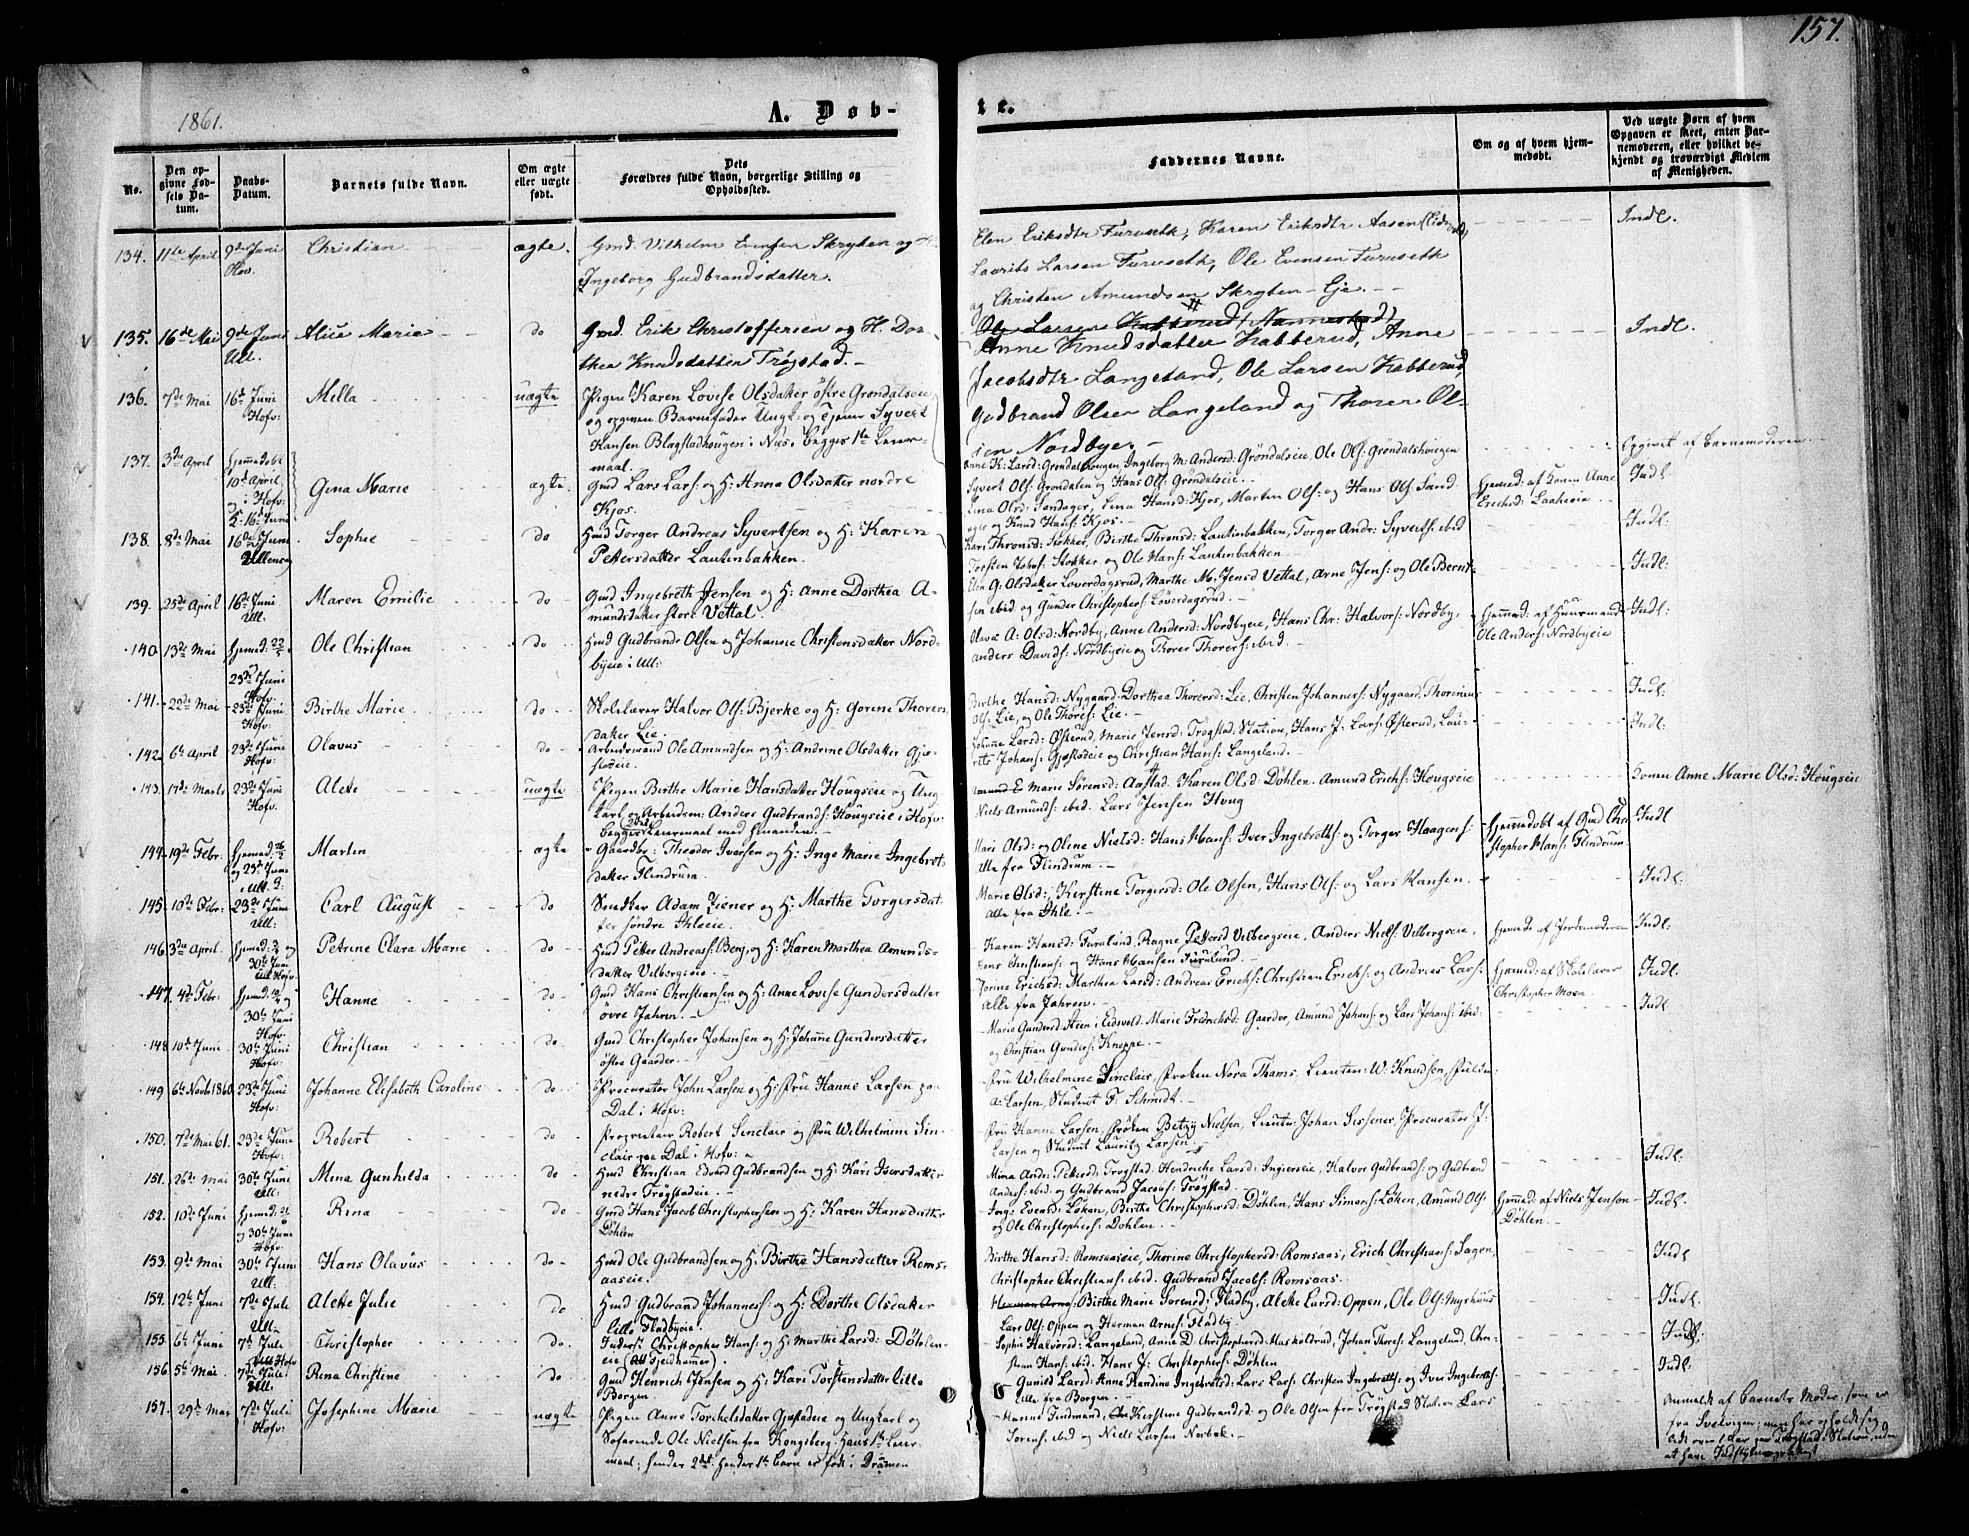 157.
1861.
A. Døb-
te.
No.
Den opgivne Fødsels Datum.
Daabs-Datum.
Barnets fulde Navn.
Om ægte eller uægte født.
Dets Forældres fulde Navn, borgerlige Stilling og Opholdssted.
Faddernes Navne.
Om og af hvem hjemmedøbt.
Ved uægte Børn af hvem Opgaven er skeet, enten Barnemoderen, eller hvilket bekjendt og troværdigt Medlem af Menigheden.
134. 11te April 9de Juni Hov. Christian ægte. Gmd. Vilhelm Evensen Skryten og H.
Ingeborg Gudbrandsdatter.
Elen Eriksdtr Furuseth, Karen Eriksdtr Aasen
Laurits Larsen Furuseth, Ole Evensen Furuseth
og Christen Amundsen Skryten-Eje.
Indl.
135. 16de Mai 9de Juni Ull. Alice Marie do Gmd. Erik Christoffersen og H. Dor-
thea Knudsdatter Trøgstad.
Ole Larsen Kabberud, Nannestad
Anne Knudsdatter Kabberud, Anne
Jacobsdtr Langeland, Ole Larsen Kabberud,
Gudbrand Olsen Langeland og Thorer Ol-
sen Nordbye.
Indl.
136. 7de Mai 16de Juni Hofv: Mella uægte Pigen Karen Lovise Olsdatter østre Grøndalseie
og opgiven Barnefader Ungk: og Tjener Syvert
Hansen Blagstadhougen i Næs. begges 1ste Leier-
maal.
Anne K: Larsd: Grøndalshougen, Ingeborg M: Andersd: Grøndalseie, Ole Ols: Grøndalshougen
Syvert Ols: Grøndalen og Hans Ols: Grøndalseie.
Opgivet af Barnemoderen.
137. 3die April Hjemmedøbt 10de April, og i Hofv: K. 16de Juni Gina Marie ægte. Gmd Lars Lars: og H: Anna Olsdatter nordre
Kjos.
Lina Olsd: Søndager, Lina Hansd: Kjos, Martin Ols: og Hans Ols: Sand
ager og Knud Hans: Kjos.
Hjemmed: af Konen Anne
Erichsd: Laaheeie
Indl
138. 8de Mai 16de Juni Ullensag Sophie do Hmd Torger Andreas Syvertsen og H: Karen
Pettersdatter Lautinbakken.
Kari Thronsd: Stokker, Birthe Thronsd: Lautinbakken, Torger Andr: Syverts: ibid
Torsten Johs: Stokker og Ole Hans: Lautinbakken.
Indl:
139. 25de April 16de Juni Ull. Maren Emilie do Gmd Ingebreth Jensen og H: Anne Dorthea A-
mundsdatter store Vettal.
Elen G: Olsdatter Løverdagsrud, Marthe M. Jensd Vettal, Arne Jens: og Ole Bernt-
sen ibid og Gunder Christophers: Løverdagsrud.
Indl:
140. 13de Mai Hjemmed: 22/5 23de Juni Hofv. Ole Christian do Hmd Gudbrand Olsen og Johanne Christensdatter Nord-
byeie i Ull:
Olave A: Olsd: Nordby, Anne Andersd: Nordbyeie, Hans Chr: Halvors: Nordby,
anders Davids: Nordbyeie og Thorer Thorers: ibid.
Hjemmed: af Huusmand
Ole Anders: Nordbyeie
Indl:
141. 22de Mai 23de Juni Hofv: Birthe Marie do Skolelærer Halvor Ols: Bjerke og H: Gorine Thorers
datter Lie.
Birthe Hansd: Nygaard, Dorthea Thorersd: Lie, Christen Johannes: Nygaard, Thorinius
Ols: Lie, og Ole Thores: Lie.
Indl:
142. 6te April 23de Juni Hofv: Olavus do Arbeidsmand Ole Amundsen og H: Andrine Olsdatter Gjæ-
stadeie.
Johanne Larsd: Østerud, Marie Jensd: Trøgstad Station, Hans J: Lars: Østerud, Lau-
rits Johans: Gjæstadeie og Christian Hans: Langeland.
Indl:
143. 17de Marts 23de Juni Hofv: Alette uægte Pigen Birthe Marie Hansdatter Hougseie og Ung
karl og Arbeidsm: Anders Gudbrands: Hougseie i Hofv:
begges (2det) Leiermaal med hinanden.
Marie Sørensd: Aastad, Karen Olsd Døhlen. Amund Erichs: Hougseie
Niels Amunds: ibid. Lars Jensen Houg
Konen Anne Marie Olsd: Hougseie
144. 19de Febr. Hjemmed: 26/2 og 23de Juni i Ull. K: Martin ægte Gaardbr: Theodor Iversen og H: Inge Marie Ingebrets
datter Flindrum.
Marie Olsd: og Oline Nielsd: Hans Hans: Iver Ingebreths: og Torger Haagens:
Alle fra Flindrum.
Hjemmedøbt af Gmd Chri-
stopher Hans: Flindrum
Indl
145. 10de Febr: 23de Juni Ull: Carl August do Snedker Adam Ziener og H: Marthe Torgersdat-
ter søndre Ihleeie
Marie Olsd: Kerstine Torgersd: Ole Olsen, Hans Ols: og Lars Hansen.
Alle fra Ihle.
Indl:
146 3die April Hjemmed: 3/4 og 30te Juni Hofv: Petrine Clara Marie do Hmd Petter Andreas: Berg, og H: Karen Marthea Amunds-
datter Vilbergseie.
Karen Hansd: Furulund, Ragne Pettersd Vilbergseie, Anders Niels: Vilbergseie,
Jens Christians: og Hans Hansen Furulund.
Hjemmed: af Jordemoderen
Indl:
147. 4de Febr: Hjemmed: og 30te Juni Hofv. Hanne do Gmd Hans Christiansen og H: Anne Lovise Gundersdatter
øvre Jahren.
Jorine Erichsd: Marthea Larsd: Andreas Erichs: Christian Erichs: og Andreas Lars:
Alle fra Jahren.
Hjemmed: af Skolelærer
Christopher Moen.
Indl:
148 10de Juni 30te Juni Hofv: Christian do. Gmd Christopher Johansen og H: Johanne Gundersdatter
østre Gaarder.
Marie Gundersd: Steen i Eidsvold. Marie Fredriksd: Gaarder, Amund Johans: og Lars Johans: ibid:
og Christian Gunders: Kneppe.
Indl:
149 6te Novbr 1860. 23de Juni Hofv: Johanne Elisabeth Caroline do. Procurator John Larsen og H: Fru Hanne Larsen paa
Dal i Hofv:
Fru Wilhelmine Sinclair, Frøken Nora Thams, Lieuten: W. Knudsen, Fuldm:
A: Larsen, Student F: Schmidt.
150. 7de Mai 61. 23de Juni Hofv: Robert do Proprietær Robert Sinclair og Fru Wilhelmine Sin-
clair paa Dal i Hofv:
Fru Hanna Larsen, Frøken Betzy Nielsen, Lieutn: Johan Sissener, Procurator J:
Larsen og Student Lauritz Larsen.
Indl:
151. 26de Mai 30te Juni Ull: Mina Gunhilda do Hmd Christian Edvard Gudbrandsen og H: Kari Iversdatter
nedre Trøgstadeie.
Mina Andr: Pettersd: Trøgstad, Hendriche Larsd: Ingierseie, Halvor Gudbrands: og Gudbrand
Anders: ibid: og Gudbrand Jacobs: Trøgstad.
152. 10de Juni Hjemmed: og 30te Juni Hofv: Rina do Gmd Hans Jacob Christophersen og H: Karen Hansdatter
Døhlen
Ing: Evensd: Løken, Birthe Christophersd: Døhlen, Hans Simons: Løken, Amund Ols:
og Ole Christophers: Døhlen.
Hjemmed: af Niels Jenson
Døhlen.
Indl.
153. 9de Mai 30te Juni Ull. Hans Olavus do Hmd Ole Gudbrandsen og H: Birthe Hansdatter Roms-
aaseie.
Birthe Hansd: Romsaaseie, Thorine Christophersd: Romsaas, Erich Christians: Sagen,
Christopher Christians: ibid. Gudbrand Jacobs: Romsaas.
Indl
154. 12te Juni 7de Juli Ull: Alette Julie do Hmd Gudbrand Johannes: og H: Dorthe Olsdatter
lille Fladbyeie.
Herman Arnes: Birthe Marie Sørensd, Fladby, Alette Larsd: Oppen, Ole Ols: Myrhuus
Lars Ols: Oppen og Herman Arnes: Fladby.
Indl.
155. 6te Juni 7de Juli Hofv Christopher do. Inders: Christopher Hans: og H: Marthe Larsd: Døhlen-
eie (Alt Fjeldhamer).
Sophie Halvorsd: Langeland, Anne D. Christophersd: Maskoldrud, Johan Thores: Langelund, Chr-
stian Hans: ibid. Hans J: Christophers: Døhlen
Indl:
156. 5te Mai. 7de Juli Ull. Rina Christine do Gmd Henrich Jensen og H: Kari Torstensdatter lille
Borgen.
Gunild Larsd: Anne Randine Ingebretsd: Lars Lars: Christen Ingebreths: og Iver Ingebreths:
alle fra Borgen.
Indl:
157. 29de Mai 7de Juli Hofv: Josephine Marie uægte Pigen Anne Torchelsdatter Gjæstadeie og Ungkarl og
Søfarende Ole Nielsen fra Kongsberg. Hans 1ste Leier
maal; hendes 2det. hendes 1ste barn er født i Dramen
Hanna Findmand, Kerstine Gudbrandsd: og Ole Olsen fra Trøgstad Station Lars
Sorens: ibid og Niels Larsen Norbæk.
Anmeldt af Barnets Moder, som er
fra Sverrigen; men har opholdt sig
lidt over 1 Aar paa Trøgstad Station, uden
at have Indflytningsattest